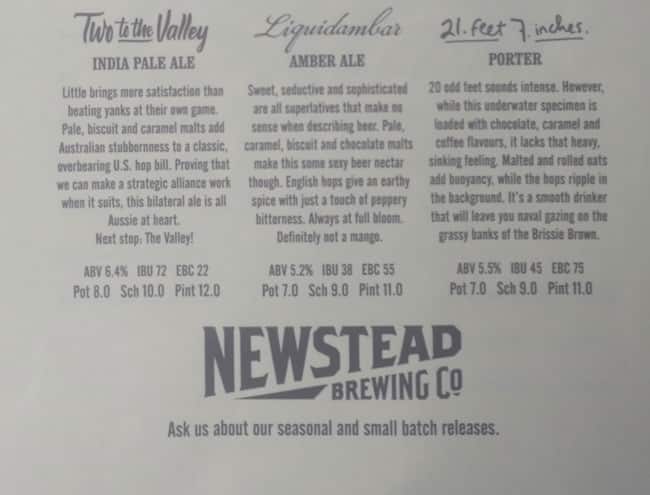 Two to the Valley
INDIA PALE ALE
Little brings more satisfaction than
beating yanks at their own game.
Pale, biscuit and caramel malts add
Australian stubbornness to a classic,
overbearing U.S. hop bill. Proving that
we can make a strategic alliance work
when it suits, this bilateral ale is all
Aussie at heart.
Next stop: The Valley!
ABV 6.4% IBU 72 EBC 22
Pot 8.0 Sch 10.0 Pint 12.0
Liquidambar
AMBER ALE
Sweet, seductive and sophisticated
are all superlatives that make no
sense when describing beer. Pale,
caramel, biscuit and chocolate malts
make this some sexy beer nectar
though. English hops give an earthy
spice with just a touch of peppery
bitterness. Always at full bloom.
Definitely not a mango.
ABV 5.2% IBU 38 EBC 55
Pot 7.0 Sch 9.0 Pint 11.0
21. feet 7. inches.
PORTER
20 odd feet sounds intense. However,
while this underwater specimen is
loaded with chocolate, caramel and
coffee flavours, it lacks that heavy,
sinking feeling. Malted and rolled oats
add buoyancy, while the hops ripple in
the background. It's a smooth drinker
that will leave you naval gazing on the
grassy banks of the Brissie Brown.
ABV 5.5% IBU 45 EBC 75
Pot 7.0 Sch 9.0 Pint 11.0
NEWSTEAD
BREWING CO
Ask us about our seasonal and small batch releases.